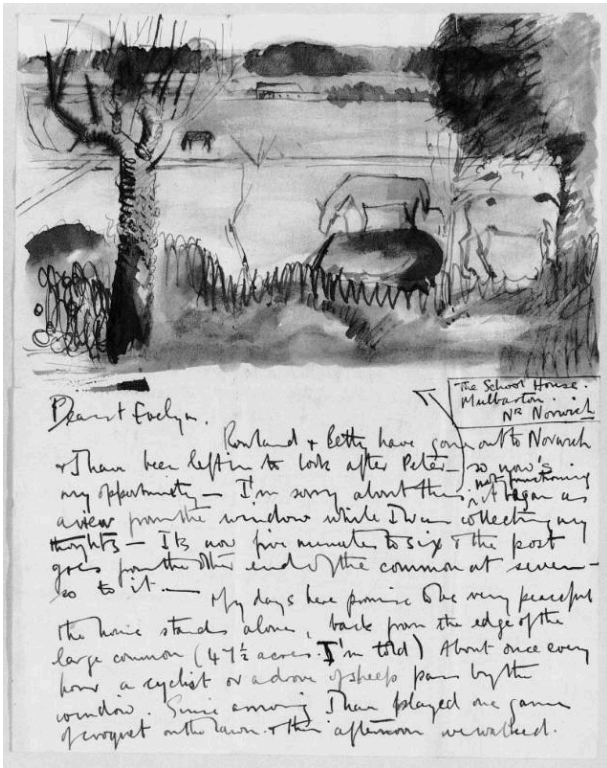 The School House.
Mulbarton.
Nr Norwich
Dearest Evelyn.
Rowland + Betty have gone out to Norwich
+ I have been left in to look after Peter – so now's
my opportunity – I'm sorry about this, not functioning it began as
a view from the window while I was collecting my
thoughts – Its now five minutes to six & the post
goes from the other end of the common at seven –
so to it. —
My days here promise to be very peaceful
the house stands alone, back from the edge of the
large common (47½ acres I'm told) About once every
hour a cyclist or a drove of sheep pass by the
window. Since arriving I have played one game
of croquet on the lawn. + this afternoon we walked.